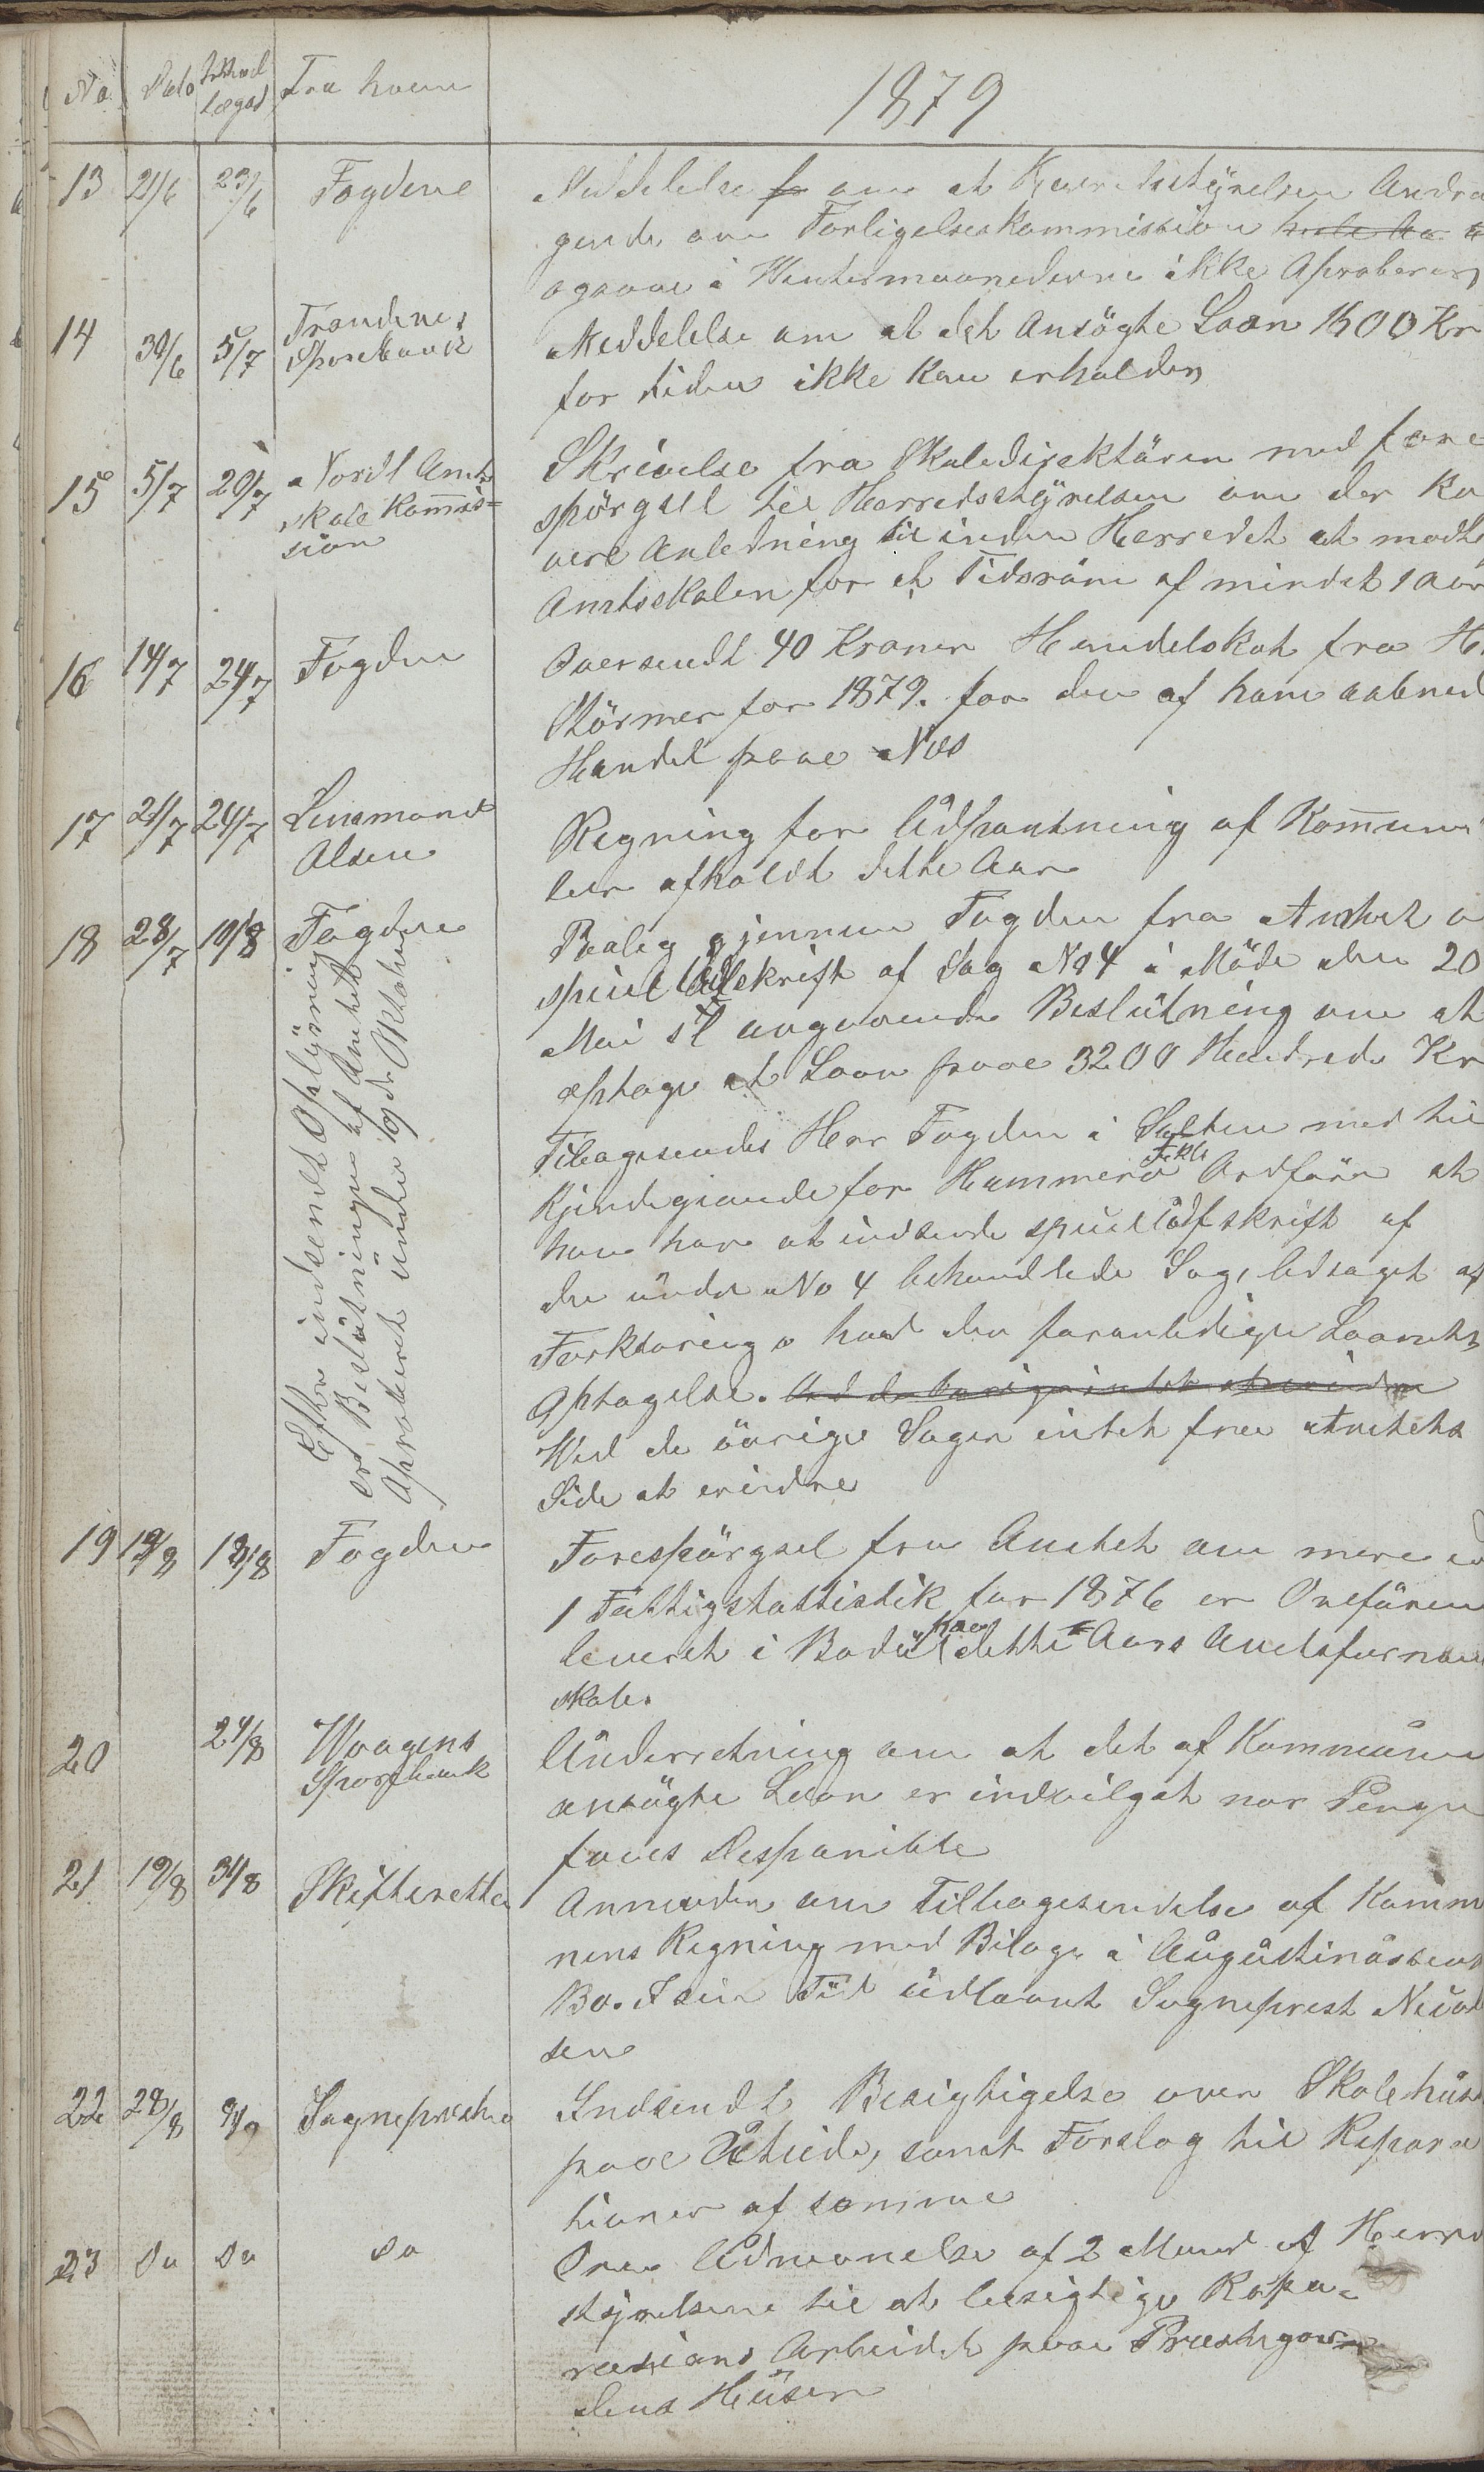 No Dato Fra hvem
1879
13 21/6 23/6 Fogden Meddelelse om at Herredsstyrelsen Andra
gende om Forligelseskommission
i Wintermaanederne ikke Aproberes
14 30/6 5/7 Trondenes Sparebank Meddelelse om at det Ansøgte Laan 1600 Kr
for tiden ikke kan erholdes
15 5/7 20/7 Nordl Amts skole Kommis= sion Skrivelse fra Skoledirektören med fore
spörgsel til Herredsstyrelsen om der ka
være Anledning til inden Herredet at modta
Amtsskolen for et Tidsrüm af mindst 1 aar
16 14/7 24/7 Fogden Oversendt 40 Kroner Handelskat fra H.
Störmer for 1879. for den af ham aabned
Handel paae Næs
17 21/7 24/7 Lensmand Olsen Regning for Udpantning af Kommun
ler afholdt dette Aar
18 28/7 10/8 Fogden Paaleg gjennem Fogden fra Amtet o
speciel Udskrift af Sag No 4 i Möde den 20
Mai angaaende Beslütning om at
optage et Laan paae 3200 Hundrede Kr
Tilbagesendes Herr Fogden i Salten med til
Kjendegivende for Hammerö Ordförer at
han har at indsende speciel Udskrift af
den ünder No 4 behandlede Sag, ledsaget af
Forklaring o hvad der foranlediger Laanets
Optagelse.
Wed de övrige Sager intet fra Amtets
Side at erindre
Efter indsendt Oplÿsning
er Beslütningen af Amtet
Aproberet ünder 10de Oktober
19 12/8 18/8 Fogden Forespörgsel fra Amtet om mere en
1 Fattigstattistik for 1876 er Overfören
leveret i Bodö dette Aars Amtsforman
skab.
20 24/8 Waagens Sparebank Ünderretning om at det af Kommünen
ansögte Laan er indvilget nar Penge
faaes Disponible
21 19/8 31/8 Skifteretten Anmoder om Tilbagesendelse af Komm
nens Regning med Bilage i Augüstinüssens
Bo. I sin Tid üdlaant Sogneprest
sen
22 28/8 9/9 Sognepresten Indsendt Besigtigelse over Skolehüs
paae samt Forslag til Repara
tioner af samme
23 Do Do Do Om Udnevnelse af 2 Mænd af Herre
styrelsen til at besigtige Repa=
rasions Arbeidet paae Præstegaar
dens Hüser